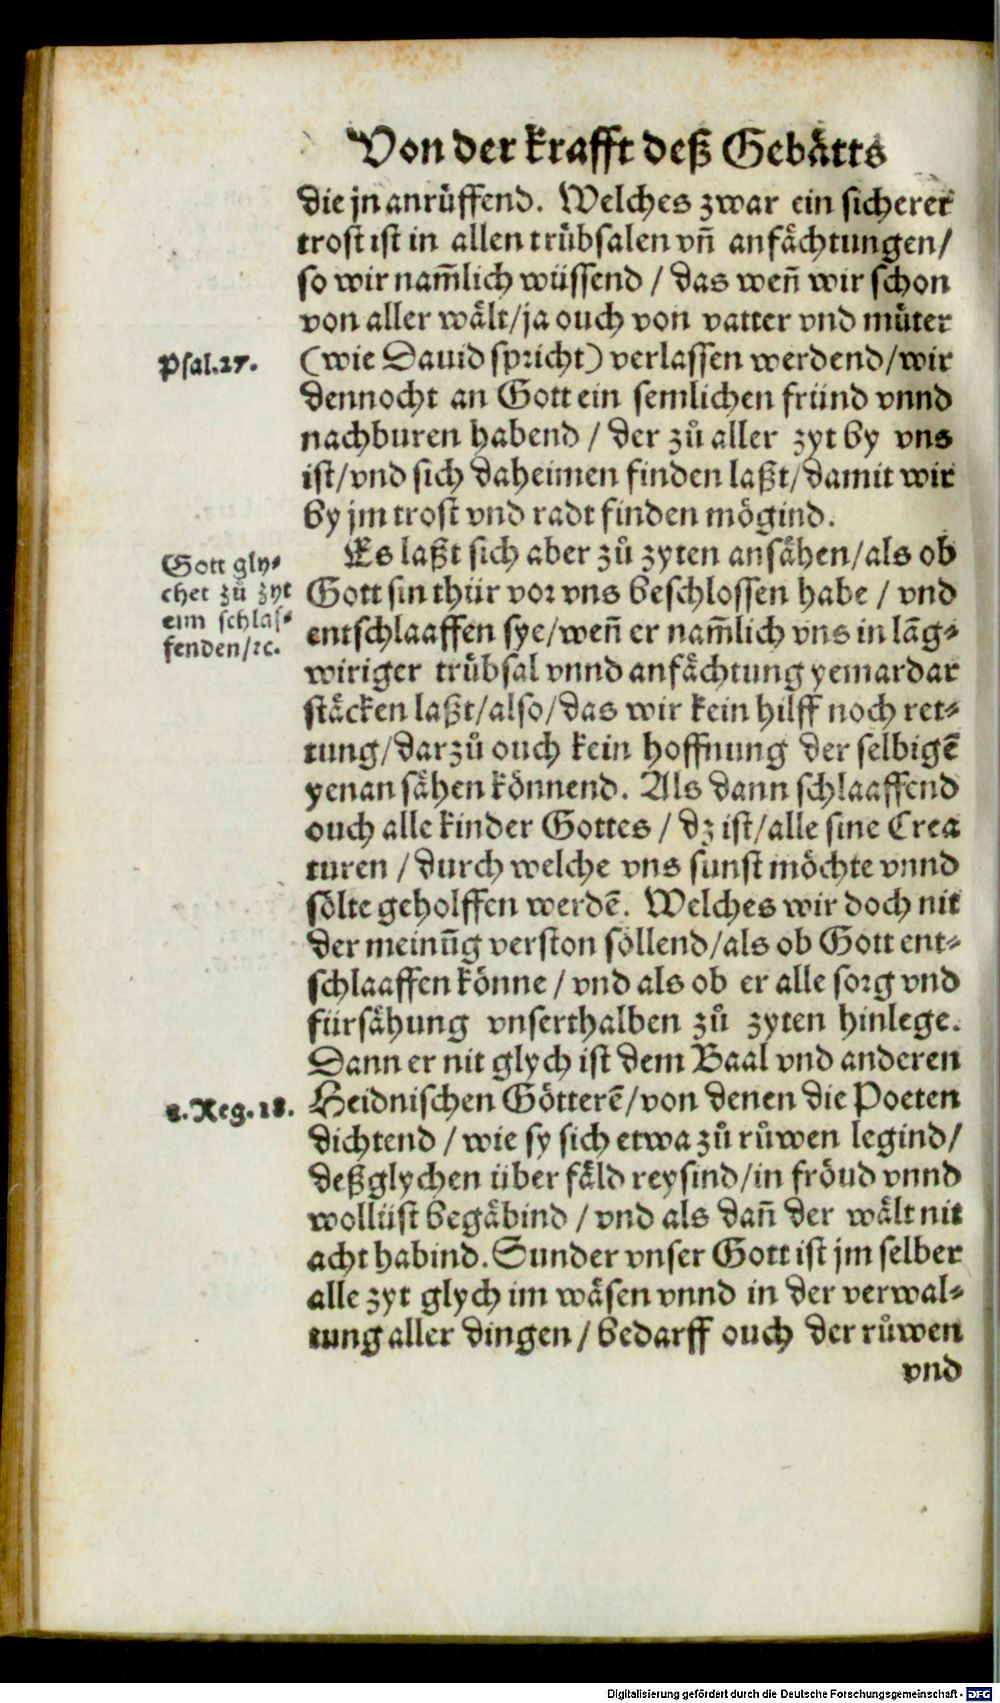 Von der krafft deß Gebätts
die jn anrüffend. Welches zwar ein sicherer
trost ist in allen trübsalen vn̄ anfächtungen/
so wir nam̄lich wüssend / das wen̄ wir schon
von aller wält/ja ouch von vatter vnd můter
Psal.27.
(wie Dauid spricht) verlassen werdend/wir
dennocht an Gott ein semlichen fründ vnnd
nachburen habend / der zů aller zyt by vns
ist/vnd sich daheimen finden laßt/damit wir
by jm trost vnd radt finden mögind.
Gott gly⸗
chet zů zyt
eim schlaf⸗
fenden/ꝛc.
Es laßt sich aber zů zyten ansähen/als ob
Gott sin thür vor vns beschlossen habe / vnd
entschlaaffen sye/wen̄ er nam̄lich vns in lāg⸗
wiriger trübsal vnnd anfächtung yemardar
stäcken laßt/also/das wir kein hilff noch ret⸗
tung/darzů ouch kein hoffnung der selbigē
yenan sähen könnend. Als dann schlaaffend
ouch alle kinder Gottes / dz ist/alle sine Crea
turen / durch welche vns sunst möchte vnnd
sölte geholffen werdē. Welches wir doch nit
der meinūg verston söllend/als ob Gott ent⸗
schlaaffen könne / vnd als ob er alle sorg vnd
fürsähung vnserthalben zů zyten hinlege.
Dann er nit glych ist dem Baal vnd anderen
Reg. 18.
Heidnischen Götterē/von denen die Poeten
dichtend / wie sy sich etwa zů růwen legind/
deßglychen über fäld reysind/in fröud vnnd
wollüst begäbind / vnd als dan̄ der wält nit
acht habind. Sunder vnser Gott ist jm selber
alle zyt glych im wäsen vnnd in der verwal⸗
tung aller dingen / bedarff ouch der růwen
vnd
Digitalisierung gefördert durch die Deutsche Forschungsgemeinschaft - DFG